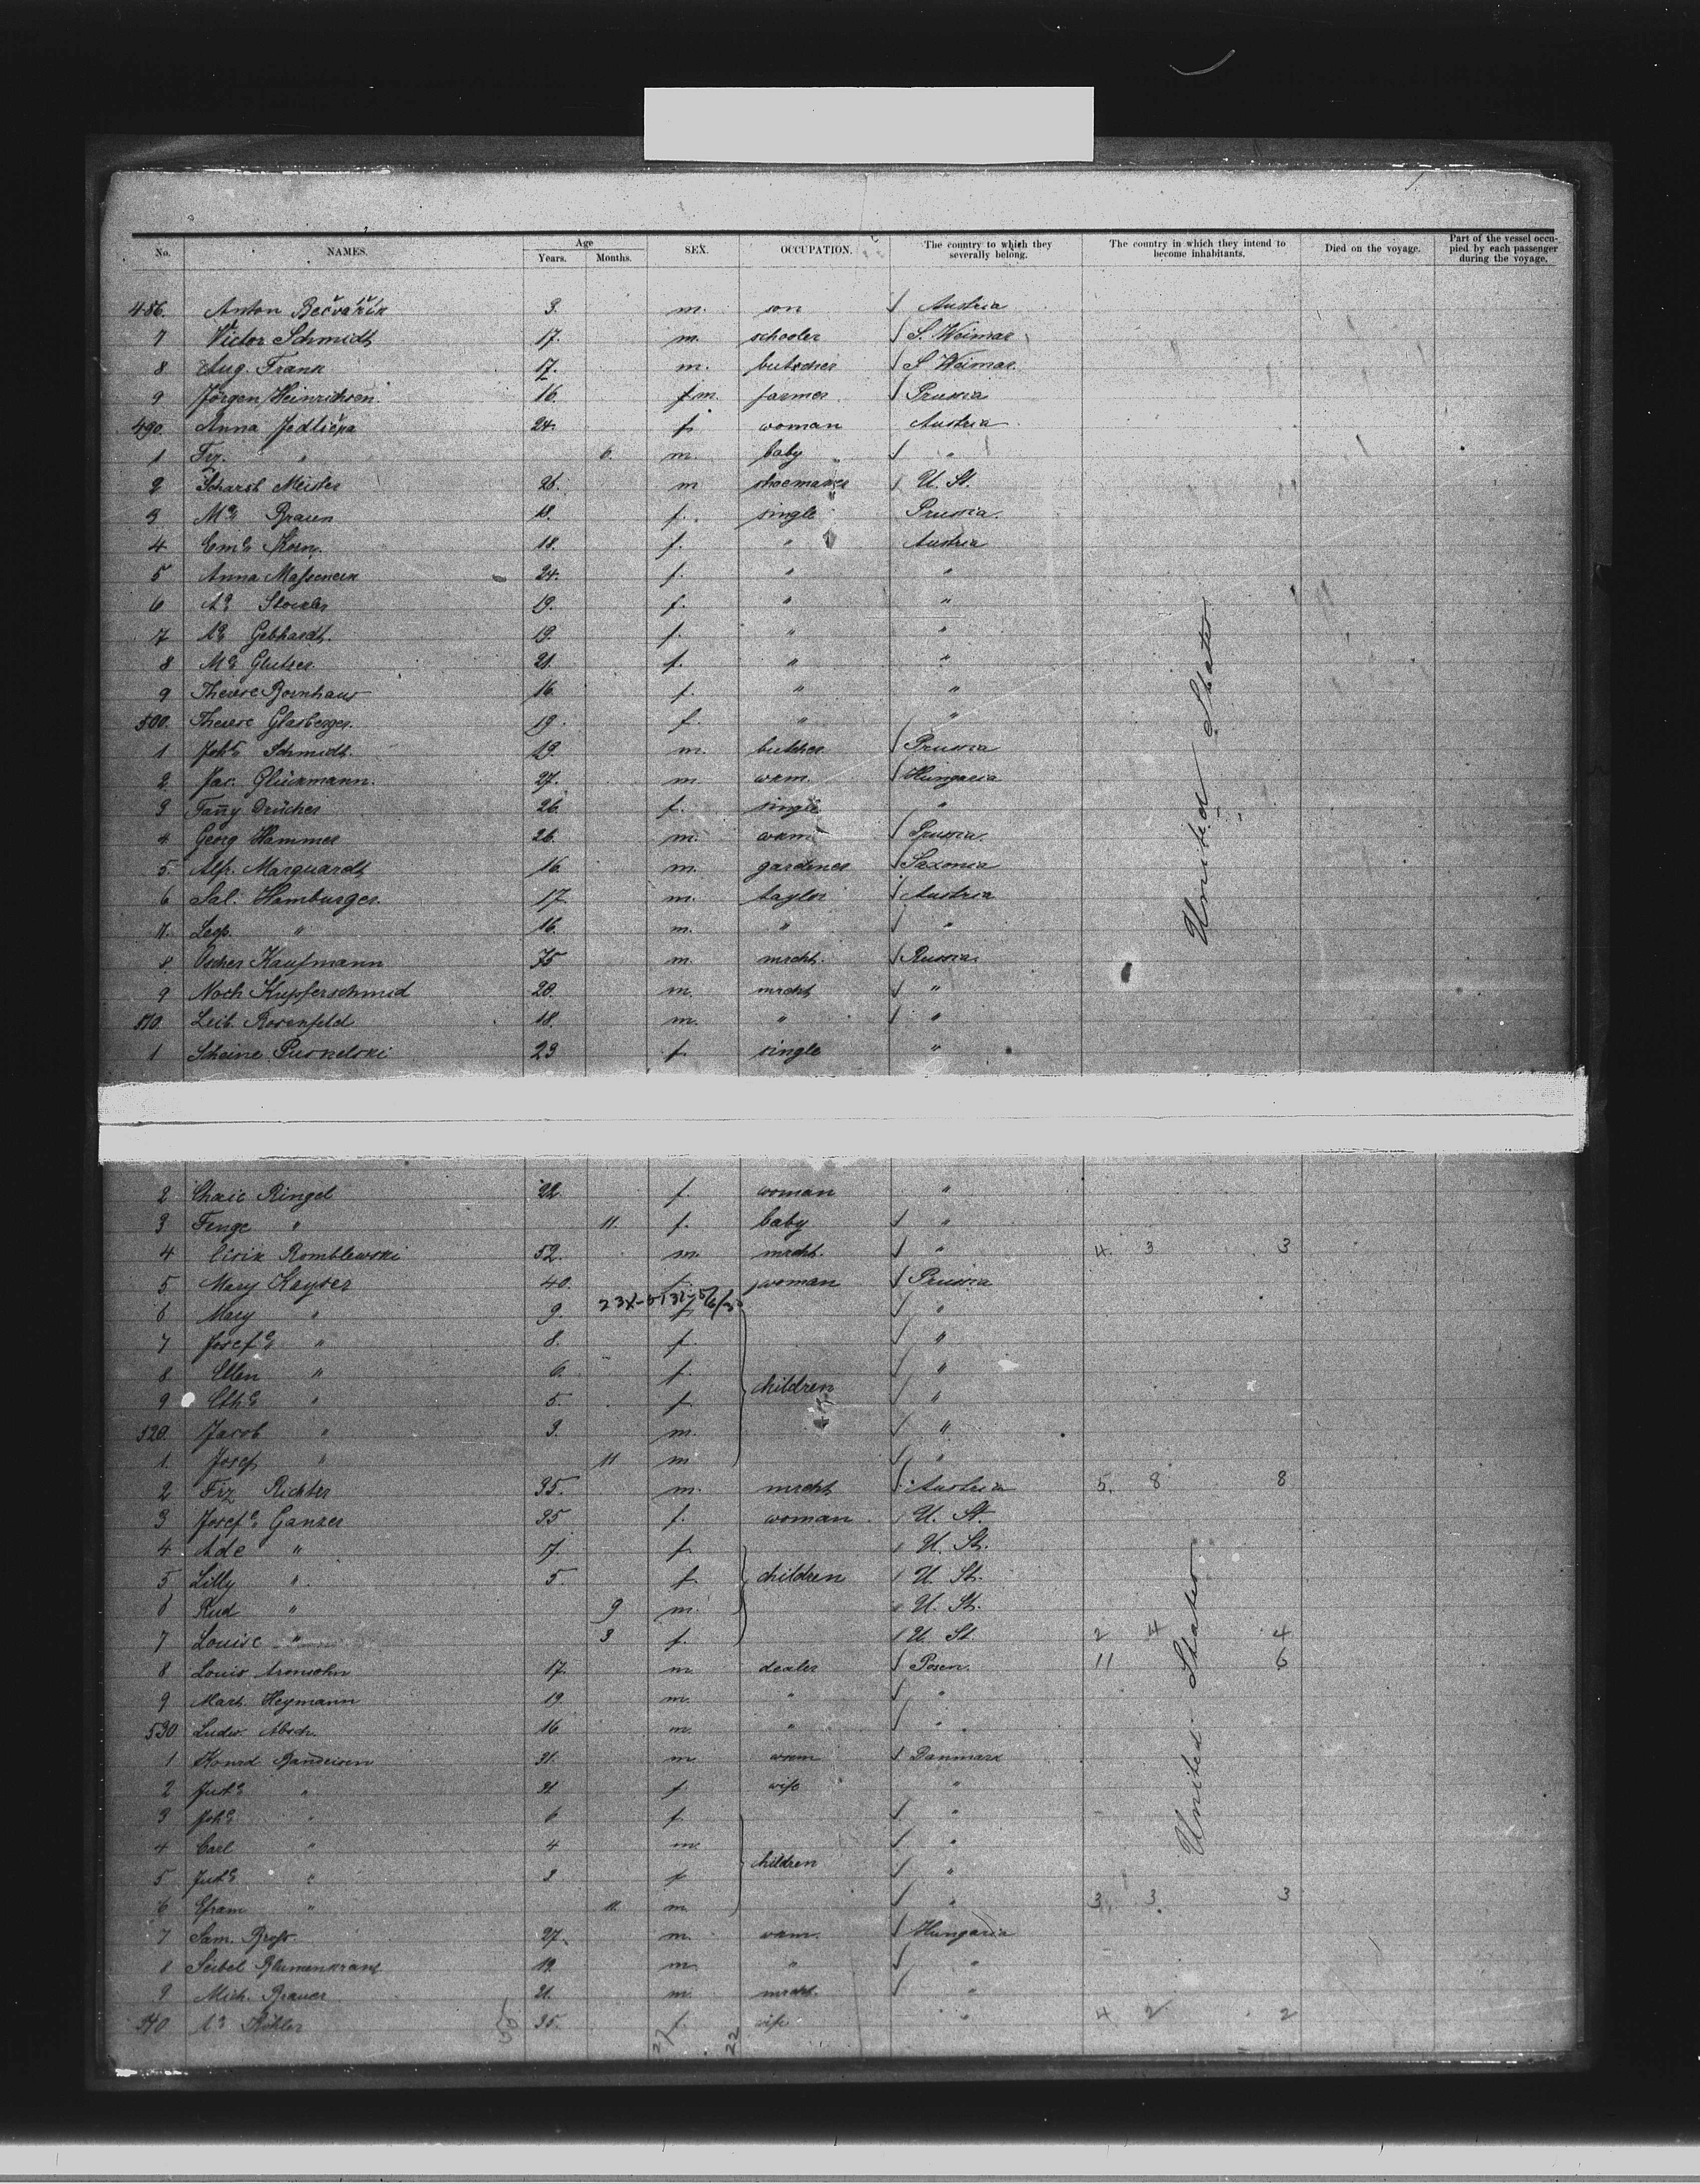 No. NAMES. Age Years. Months. SEX. OCCUPATION. The country to which they severally belong. The country in which they intend to become inhabitants. Died on the voyage. Part of the vessel occupied by each passenger during the voyage.
486. Anton Bečvařík 3. m. son Austria
7 Victor Schmidt 17. m. schooler S. Weimar
8. Aug. Frank 17. m. butscher S. Weimar
9 Jörgen Heinrichsen. 16. m. farmer Prussia
490. Anna Jedlička 24. f. woman Austria
1 Frz. " 6. m. baby "
2 Meister 26. m shoemaker U. St.
3 Braun 18. f. single Prussia
4 Korn. 18. f. " Austria
5 Anna 24. f. " "
6 19. f. " "
7 Gebhardt. 19. f. " "
8 21. f. " "
9 Therese Bornhaus 16. f. " "
500. Therese Glasberger. 19. f. " "
1 Schmidt. 19. m. butcher Prussia
2 Jac. Glückmann. 27. m. wkm. Hungaria
3 Fanny Drücker 26. f. single "
4 Georg Hammer 26. m. wkm. Prussia
5. Alfr. Marquardt 16. m. gardener Saxonia
6 Sal. Hamburger. 17 m. taylor Austria
7. Leop. " 16. m. " "
8 Kaufmann 75 m. mrcht. Russia
9 Noch Kupferschmid 20. m. mrcht "
510. Leib. Rosenfeld 18. m. " "
1 Scheine 23 f. single "
United States
2 Chaie Ringel 22. f. woman "
3 Fenge " 11. f. baby "
4 Romblewski 52. m. mrcht. " 4. 3 3
5 Mary Kayser 40. f. woman Prussia
6 Mary " 9. f. "
7 Josef " 8. f. "
8 Ellen " 6. f. "
9 " 5. f. children "
520. Jacob " 3. m. "
1. Josef " 11 m "
2 Frz Richter 35. m. mrcht Austria 5. 8 8
3 Ganzer 35 f. woman U. St.
4 Ade " 7. f. U. St.
5 Lilly " 5. f. children U. St.
6 Rud " 9 m. U. St.
7 Louise " 3 f. U. St. 2 4 4
8 Louis Aronsohn 17. m dealer Posen. 11 6
9 Mart. Heymann 19. m. " "
530 Ludw. 16 m. " "
1 31. m. wkm Danmark
2 " 31 f. wife "
3 " 6 f. "
4 Carl " 4 m. "
5 " 3 f children "
6 Efram " 11. m. " 3. 3. 3
7 Sam. 27. m. wkm. Hungaria
8 Seibel Blumenkranz 19. m. " "
9 Mich. Brauer 21. m. mrcht. "
540 Köhler 35. f. wife " 4 2 2
United States